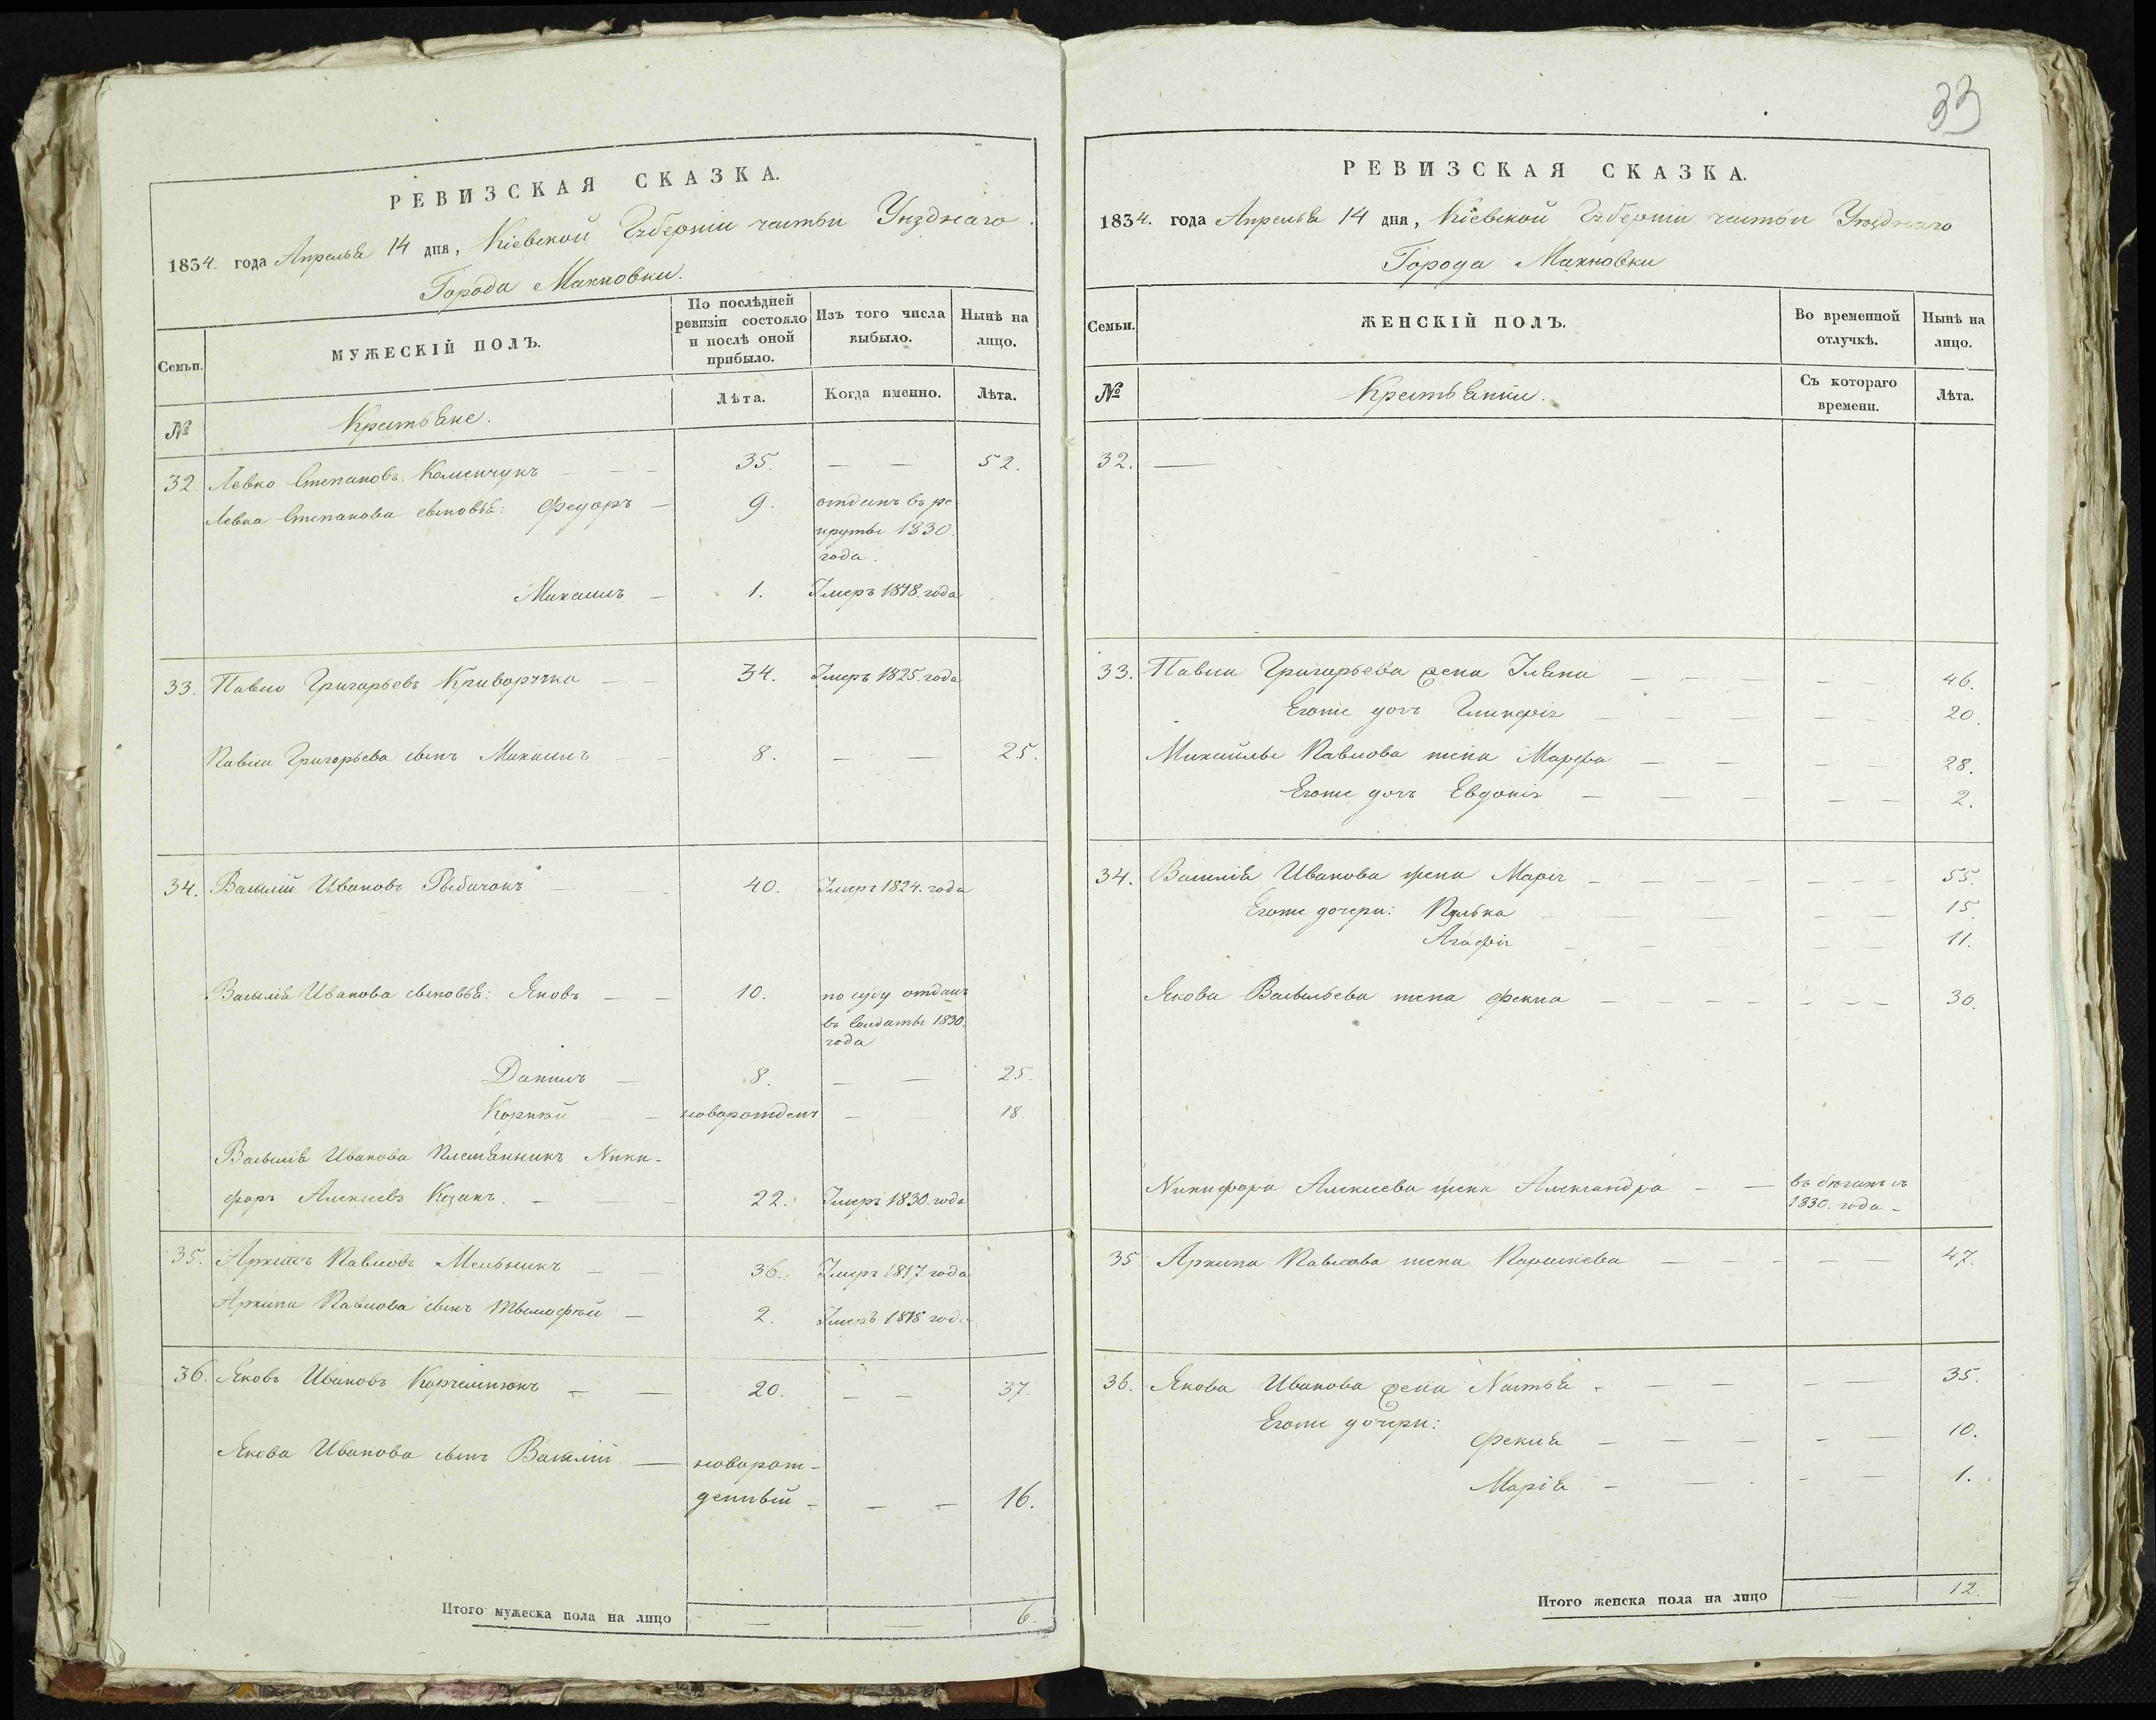 РЕВИЗСКАЯ СКАЗКА.
1834. года Апреля 14 дня, Кіевской Губерніи части Уѣзднаго
Города Махновки.
Семьи.
МУЖЕСКІЙ ПОЛЪ.
По послѣдней ревизіи состояло и послѣ оной прибыло.
Изъ того числа выбыло.
Нынѣ на лицо.
№
Крестьяне.
Лѣта.
Когда именно.
Лѣта.
32. Левко Степановъ — — 35. — — 52.
Левка Степанова сыновья: Федоръ — 9. отданъ въ ре
круты 1830.
года.
Михаилъ — 1. Умеръ 1818. года
33. Павло Григорьевъ Криворучка — — 34. Умеръ 1825. года
Павла Григорьева сынъ Михаилъ — — 8. — — 25.
34. Василій Ивановъ Рыбачокъ — — 40. Умеръ 1824. года
Василія Иванова сыновья: Яковъ — — 10. по суду отданъ
въ Солдаты 1830.
года
Данилъ — 8. — — 25.
Корнѣй — — новорожденъ — 18.
Василія Иванова Племянникъ Ники-
форъ Алексеевъ Козакъ. — — — 22. Умеръ 1830. года
35. Архипъ Павловъ Мельникъ — — 36. Умеръ 1817. года
Архипа Павлова сынъ Тымофѣй — 2. Умеръ 1818. года
36. Яковъ Ивановъ — — 20. — — 37.
Якова Иванова сынъ Василій — новорож-
денный — — — 16.
Итого мужеска пола на лицо — — 6.
33
РЕВИЗСКАЯ СКАЗКА.
1834. года Апреля 14 дня, Кіевской Губерніи части Уѣзднаго
Города Махновки
Семьи.
ЖЕНСКІЙ ПОЛЪ.
Во временной отлучкѣ.
Нынѣ на лицо.
№
Крестьянки.
Съ котораго времени.
Лѣта.
32. —
33. Павла Григорьева жена Уляна — — — — — 46.
Егоже дочь Гликерія — — — — — 20.
Михайлы Павлова жена Марфа — — — — — 28.
Егоже дочь Евдокія — — — — — 2.
34. Василія Иванова жена Марія — — — — — — — 55.
Егоже дочери: — — — — — 15.
Агафія — — — — 11.
Якова Васильева жена Фекла — — — — — — — 30.
Никифора Алексеева жена Александра — — въ бѣгахъ съ
1830. года —
35. Архипа Павлова жена Параскева — — — — — 47.
36. Якова Иванова жена Настья — — — — — 35.
Егоже дочери:
Фекла — — — — — 10.
Марія — — — — 1.
Итого женска пола на лицо — 12.